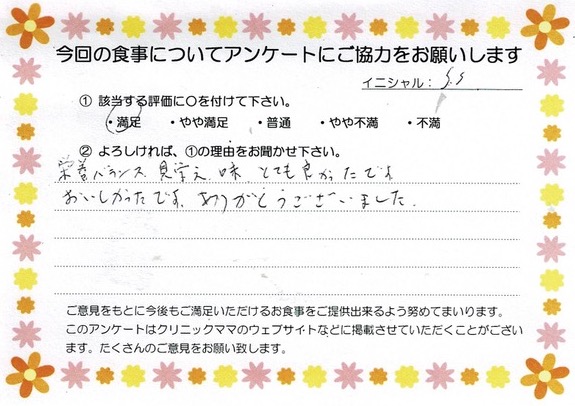 今回の食事についてアンケートにご協力をお願いします
イニシャル： S.S
① 該当する評価に〇を付けて下さい。
・満足 ・やや満足 ・普通 ・やや不満 ・不満
② よろしければ、①の理由をお聞かせ下さい。
栄養バランス 見栄え 味 とても良かったです
おいしかったです。ありがとうございました。
ご意見をもとに今後もご満足いただけるお食事をご提供出来るよう努めてまいります。
このアンケートはクリニックママのウェブサイトなどに掲載させていただくことがござい
ます。たくさんのご意見をお願い致します。